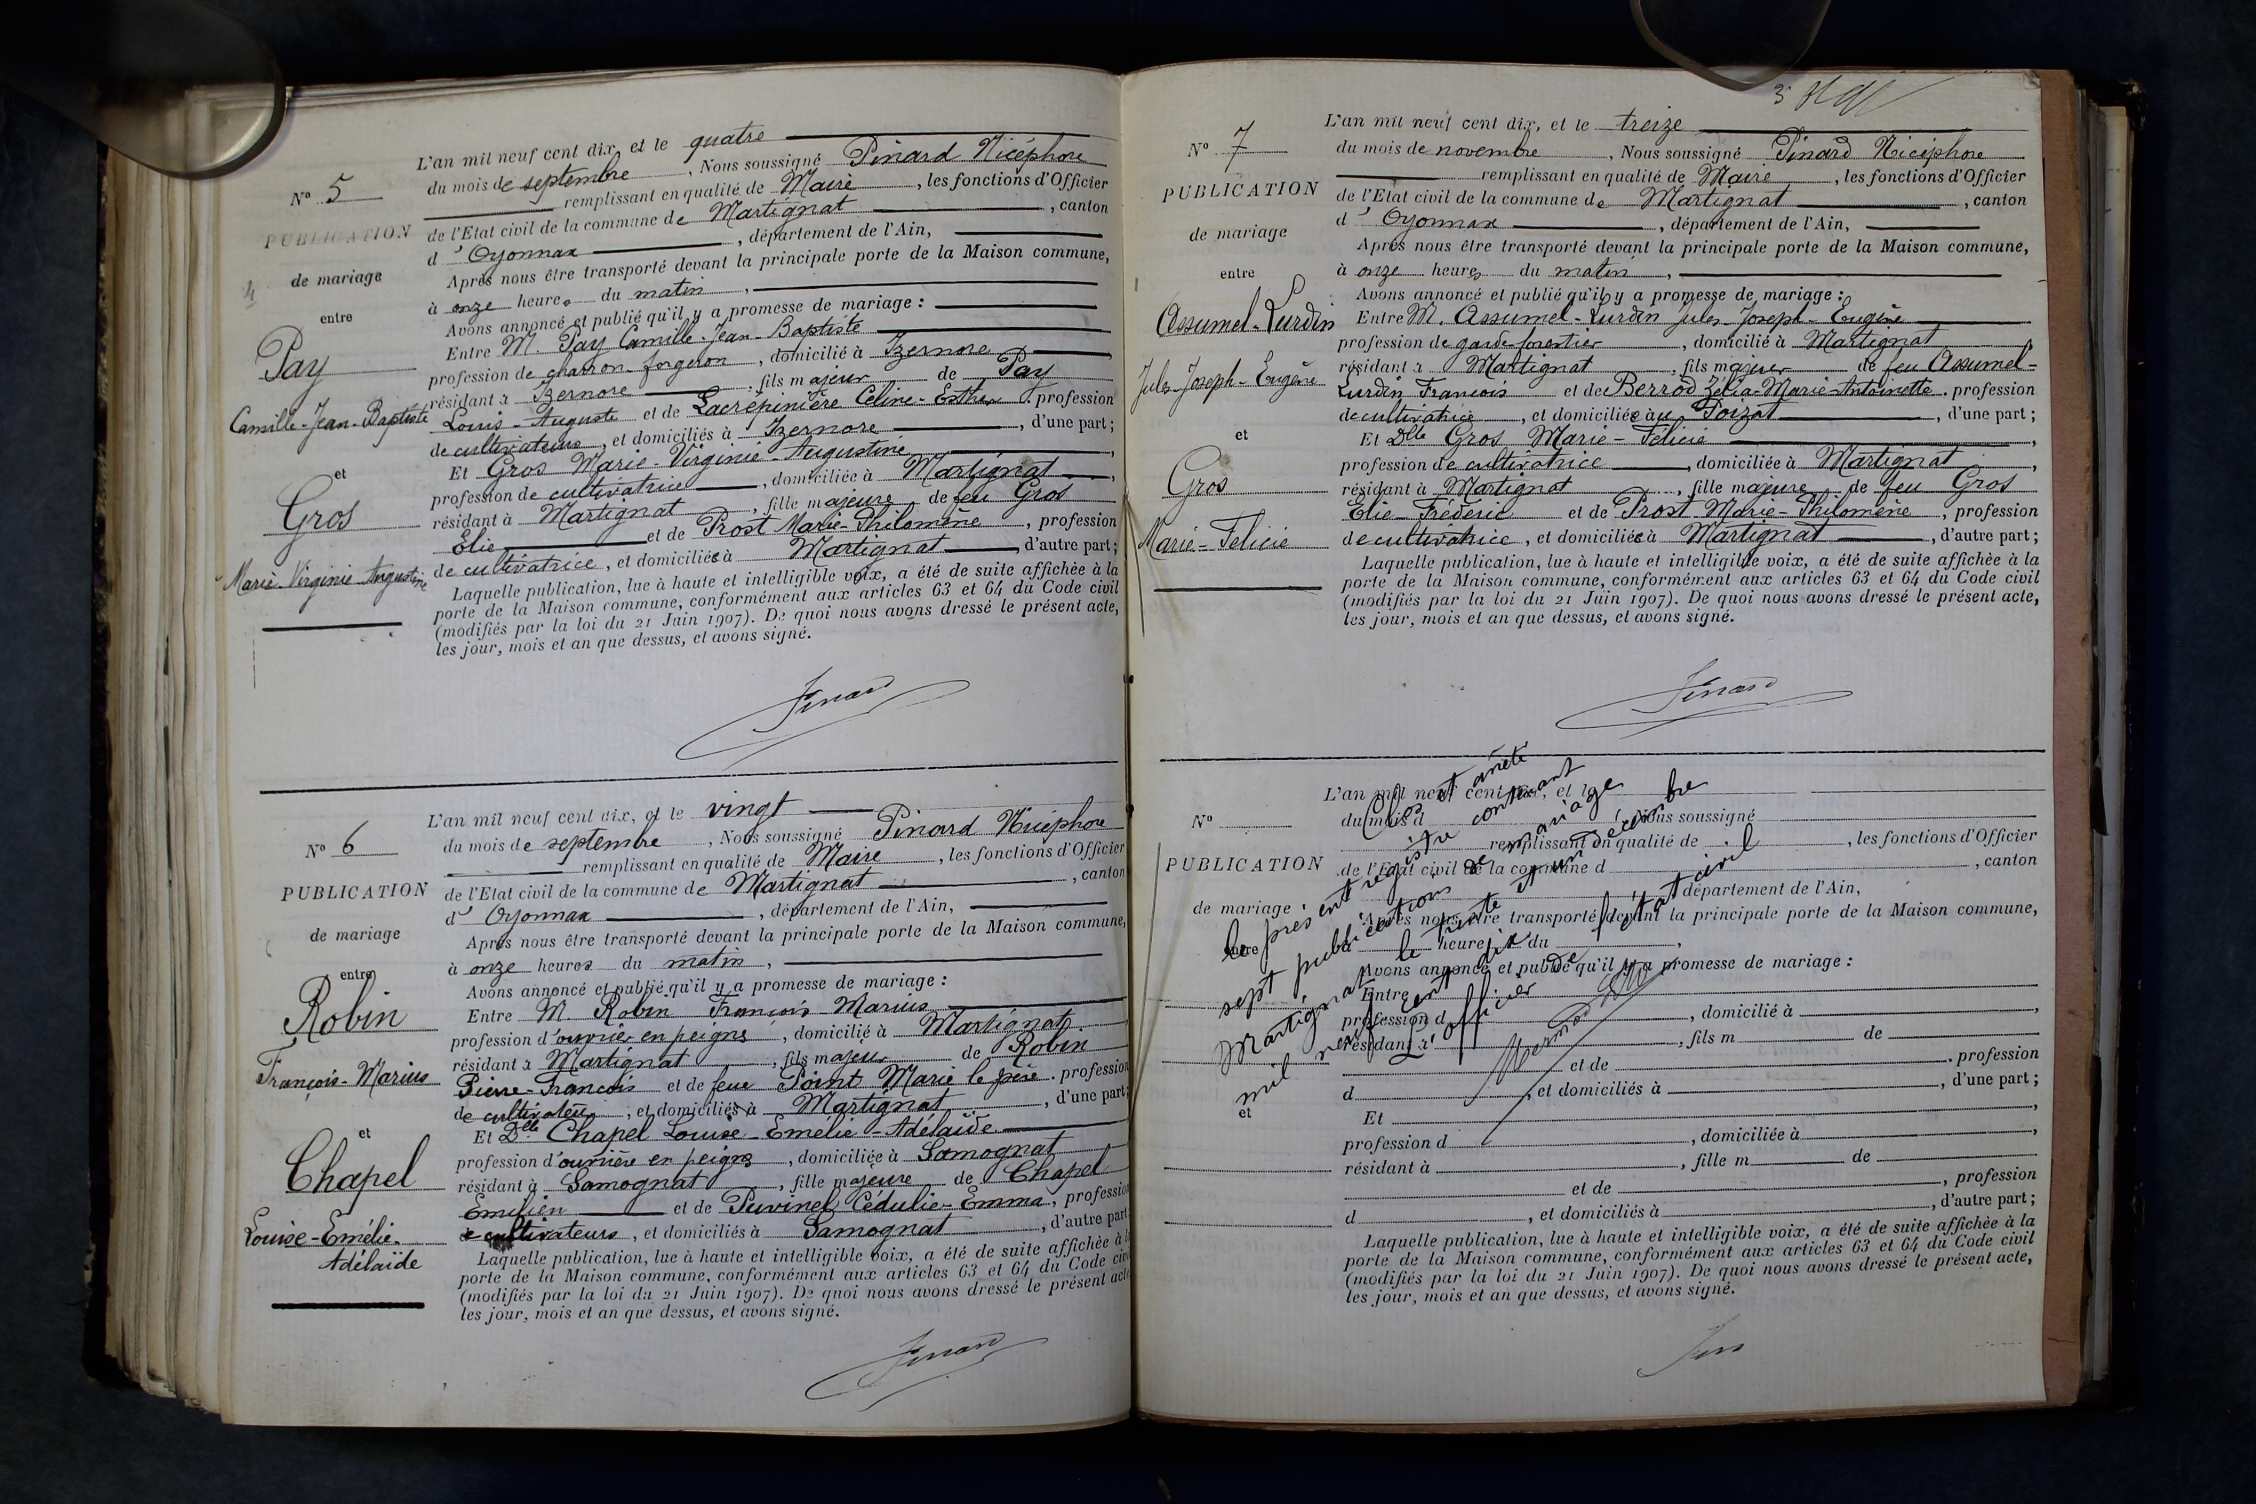 L'an mil neuf cent dix, et le quatre
du mois de septembre, Nous soussigné Pinard Nicéphore
remplissant en qualité de Maire, les fonctions d'Officier
de l'Etat civil de la commune de Martignat, canton
d'Oyonnax, département de l'Ain,
Après nous être transporté devant la principale porte de la Maison commune,
à onze heures du matin,
Avons annoncé et publié qu'il y a promesse de mariage :
Entre M. Pay Camille-Jean-Baptiste
profession de charron-forgeron, domicilié à Izernore,
résidant à Izernore, fils majeur de Pay
Louis-Auguste et de Lacrépinière Céline-Esther, profession
de cultivateurs, et domiciliés à Izernore, d'une part ;
Et Gros Marie-Virginie-Augustine,
profession de cultivatrice, domiciliée à Martignat,
résidant à Martignat, fille majeure de feu Gros
Elie et de Prost Marie-Philomène, profession
de cultivatrice, et domiciliée à Martignat, d'autre part ;
Laquelle publication, lue à haute et intelligible voix, a été de suite affichée à la
porte de la Maison commune, conformément aux articles 63 et 64 du Code civil
(modifiés par la loi du 21 Juin 1907). De quoi nous avons dressé le présent acte,
les jour, mois et an que dessus, et avons signé.
Pinard
N° 5
PUBLICATION
de mariage
entre
Pay
Camille-Jean-Baptiste
et
Gros
Marie-Virginie Augustine
L'an mil neuf cent dix, et le vingt
du mois de septembre, Nous soussigné Pinard Nicéphore
remplissant en qualité de Maire, les fonctions d'Officier
de l'Etat civil de la commune de Martignat, canton
d'Oyonnax, département de l'Ain,
Après nous être transporté devant la principale porte de la Maison commune,
à onze heures du matin,
Avons annoncé et publié qu'il y a promesse de mariage :
Entre M Robin François-Marius
profession d'ouvrier en peignes, domicilié à Martignat,
résidant à Martignat, fils majeur de Robin
Pierre-François et de feue Point Marie le père, profession
de cultivateur, et domiciliés à Martignat, d'une part ;
Et Dlle Chapel Louise-Emélie-Adélaïde
profession d'ouvrière en peignes, domiciliée à Samognat
résidant à Samognat, fille majeure de Chapel
Emilien et de Puvinel Cédulie-Emma, profession
de cultivateurs, et domiciliés à Samognat, d'autre part
Laquelle publication, lue à haute et intelligible voix, a été de suite affichée à la
porte de la Maison commune, conformément aux articles 63 et 64 du Code civil
(modifiés par la loi du 21 Juin 1907). De quoi nous avons dressé le présent acte
les jour, mois et an que dessus, et avons signé.
Pinard
N° 6
PUBLICATION
de mariage
entre
Robin
François-Marius
et
Chapel
Louise-Emélie-
Adélaïde
3
L'an mil neuf cent dix, et le treize
du mois de novembre, Nous soussigné Pinard Nicéphore
remplissant en qualité de Maire, les fonctions d'Officier
de l'Etat civil de la commune de Martignat, canton
d'Oyonnax, département de l'Ain,
Après nous être transporté devant la principale porte de la Maison commune,
à onze heures du matin,
Avons annoncé et publié qu'il y a promesse de mariage :
Entre M. Assumel-Lurdin Jules-Joseph-Eugène
profession de garde-forestier, domicilié à Martignat,
résidant à Martignat, fils majeur de feu Assumel-
Lurdin François et de Berrod Zélia-Marie-Antoinette, profession
de cultivatrice, et domiciliée au Poizat, d'une part ;
Et Dlle Gros Marie-Félicie,
profession de cultivatrice, domiciliée à Martignat,
résidant à Martignat, fille majeure de feu Gros
Elie-Fréderic et de Prost Marie-Philomène, profession
de cultivatrice, et domiciliée à Martignat, d'autre part ;
Laquelle publication, lue à haute et intelligible voix, a été de suite affichée à la
porte de la Maison commune, conformément aux articles 63 et 64 du Code civil
(modifiés par la loi du 21 Juin 1907). De quoi nous avons dressé le présent acte,
les jour, mois et an que dessus, et avons signé.
Pinard
N° 7
PUBLICATION
de mariage
entre
Assumel-Lurdin
Jules-Joseph-Eugène
et
Gros
Marie-Félicie
L'an mil neuf cent dix, et le
du mois d, Nous soussigné
remplissant en qualité de, les fonctions d'Officier
de l'Etat civil de la commune d, canton
, département de l'Ain,
Après nous être transporté devant la principale porte de la Maison commune,
à heure du,
Avons annoncé et publié qu'il y a promesse de mariage :
Entre
profession d, domicilié à,
résidant à, fils m de
et de, profession
d, et domiciliés à, d'une part ;
Et,
profession d, domiciliée à,
résidant à, fille m de
et de, profession
d, et domiciliés à, d'autre part ;
Laquelle publication, lue à haute et intelligible voix, a été de suite affichée à la
porte de la Maison commune, conformément aux articles 63 et 64 du Code civil
(modifiés par la loi du 21 Juin 1907). De quoi nous avons dressé le présent acte,
les jour, mois et an que dessus, et avons signé.
N°
PUBLICATION
de mariage
entre
et
Clos et arrêté
le présent registre contenant
sept publications de mariage
Martignat le trente et un décembre
mil neuf cent dix.
L'officier de l'état civil